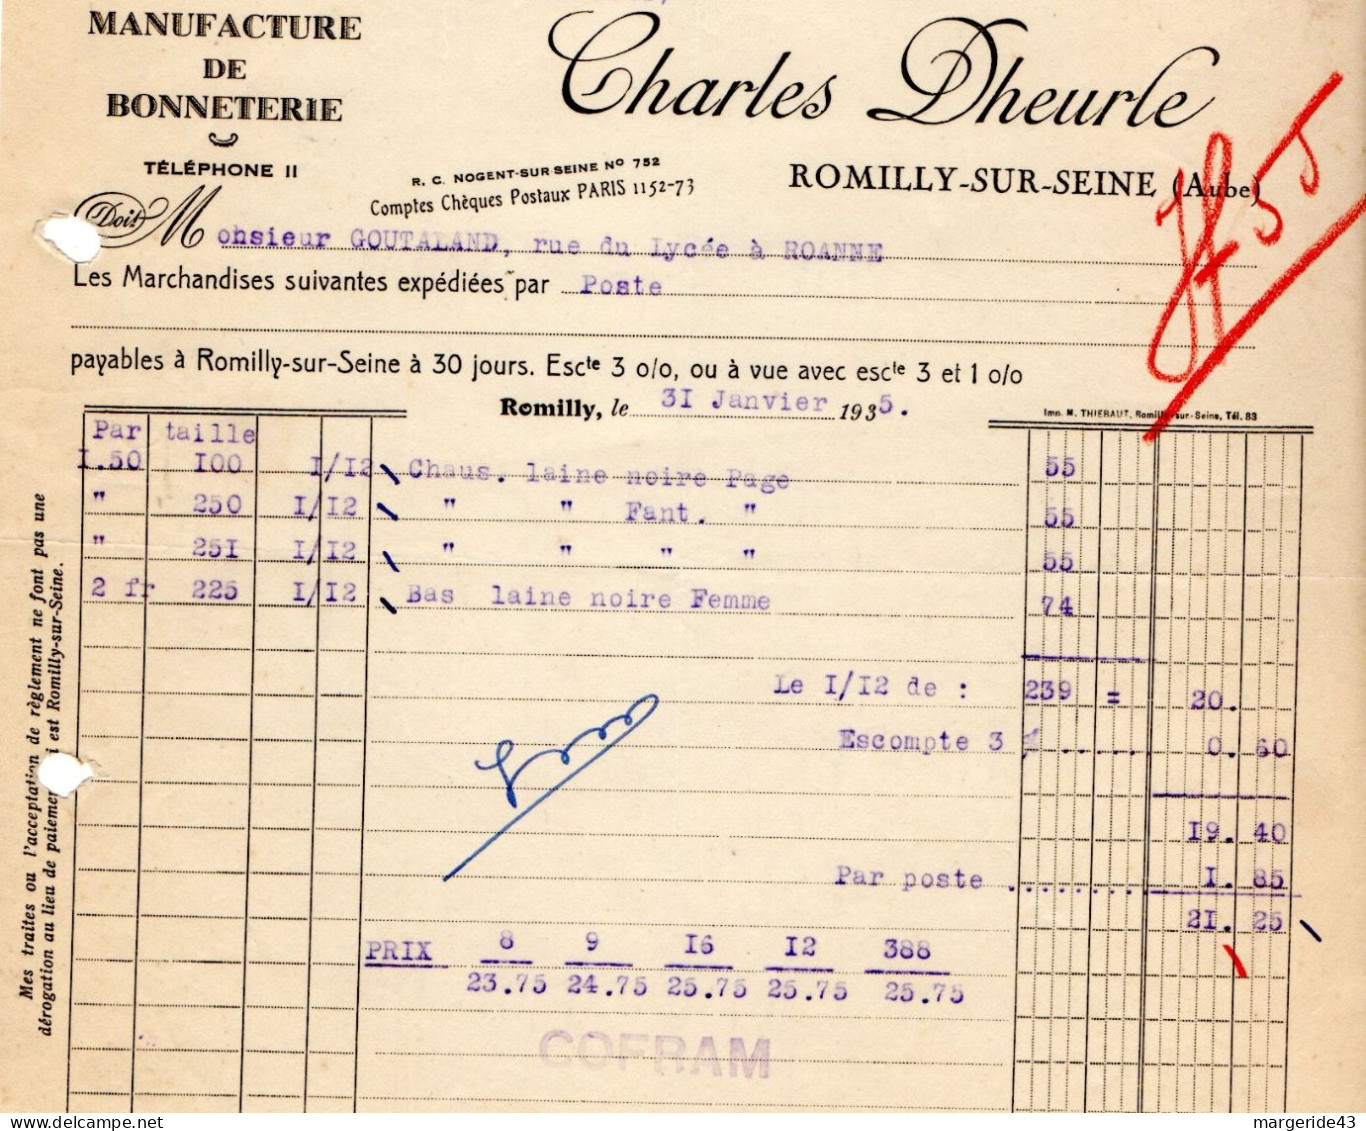 MANUFACTURE
DE
BONNETERIE
TÉLÉPHONE 11
Charles Dheurle
R. C. NOGENT-SUR SEINE No 752
Comptes Chèques Postaux PARIS 1152-73
ROMILLY-SUR-SEINE (Aube)
Doit Monsieur GOUTALAND, rue du Lycée à ROANNE
Les Marchandises suivantes expédiées par Poste
payables à Romilly-sur-Seine à 30 jours. Escte 3 o/o, ou à vue avec escte 3 et 1 o/o
Romilly, le 31 Janvier 1935.
Imp. M. THIEBAUT, Romilly-sur-Seine, Tél. 83
Par taille
I.50 I00 I/I2 Chaus. laine noire Page 55
" 250 I/I2 " " Fant. " 55
" 25I I/I2 " " " " 55
2 fr 225 I/I2 Bas laine noire Femme 74
Le I/I2 de : 239 = 20.
Escompte 3 % ..... 0. 60
19. 40
Par poste ........ I. 85
21. 25
PRIX 8 9 I6 I2 388
23.75 24.75 25.75 25.75 25.75
COFRAM
Mes traites ou l'acceptation de règlement ne font pas une
dérogation au lieu de paiement qui est Romilly-sur-Seine.
margeride43